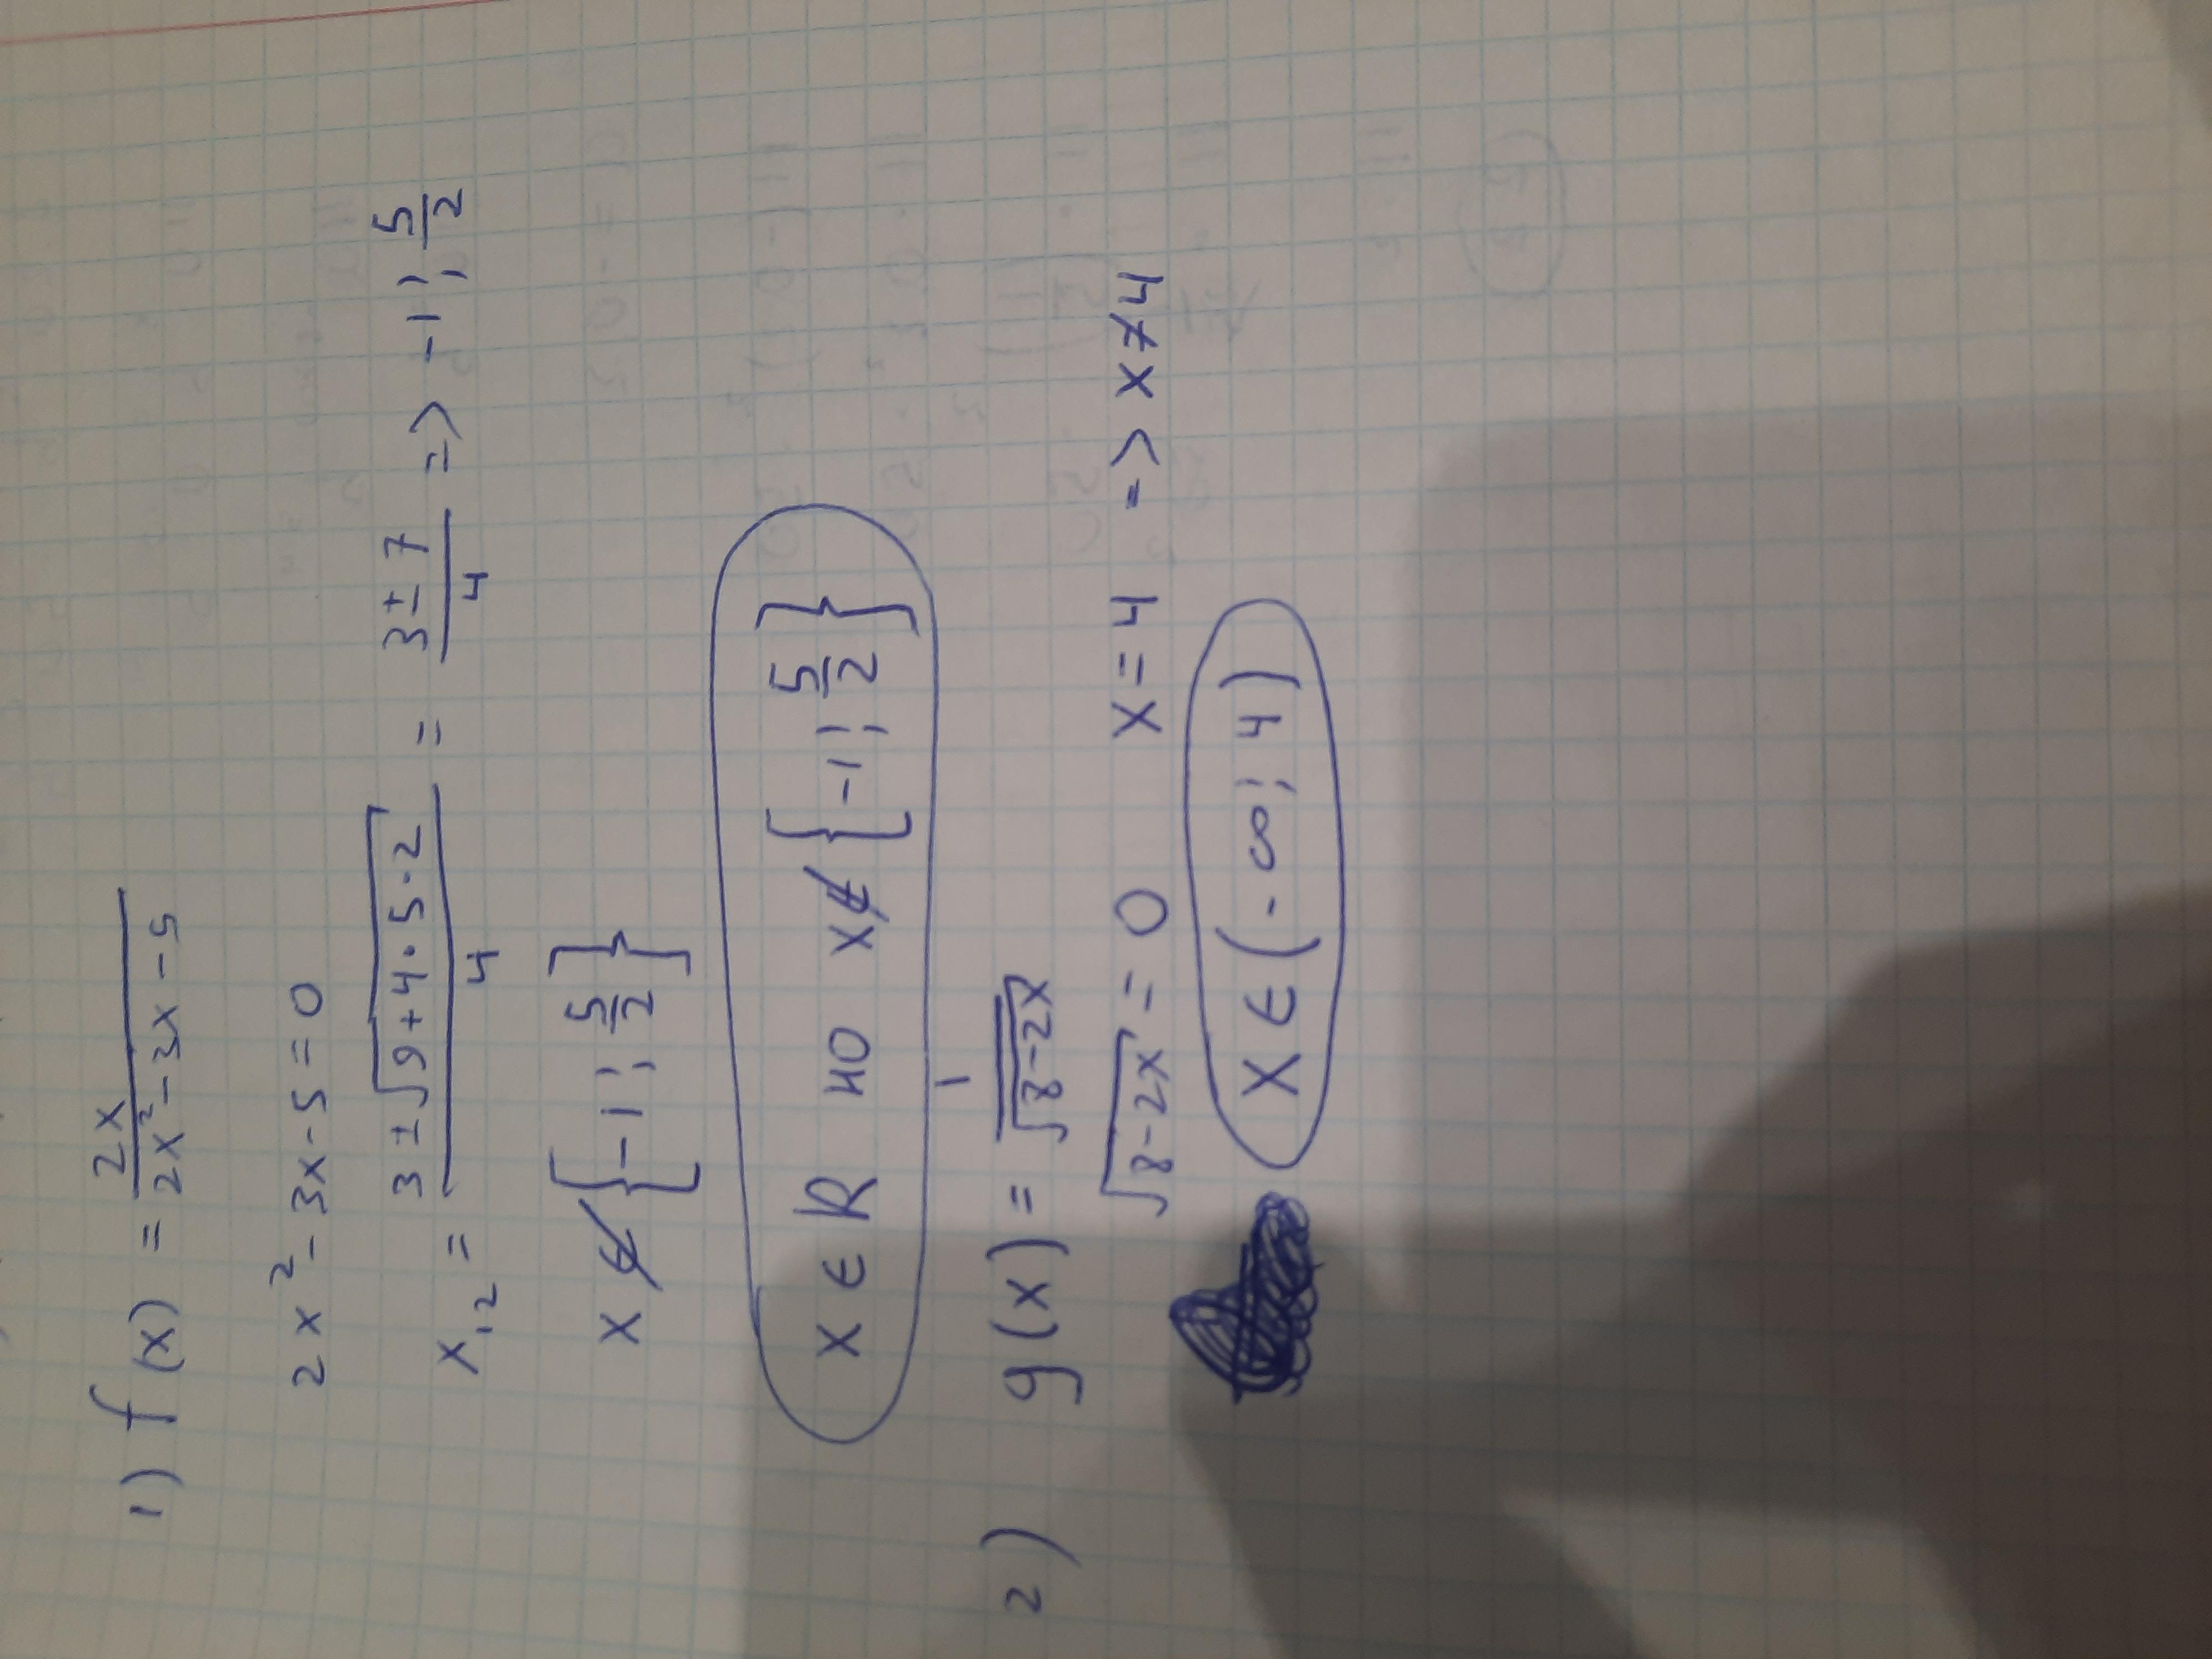 1) f(x) = 2x / 2x² - 3x - 5
2x² - 3x - 5 = 0
x₁,₂ = 3 ± √9 + 4 · 5 · 2 / 4 = 3 ± 7 / 4 => -1; 5/2
x ∉ {-1; 5/2}
x ∈ R но x ∉ {-1; 5/2}
2) g(x) = 1 / √8-2x
√8-2x = 0 x = 4 => x ≯ 4
x ∈ (-∞; 4)